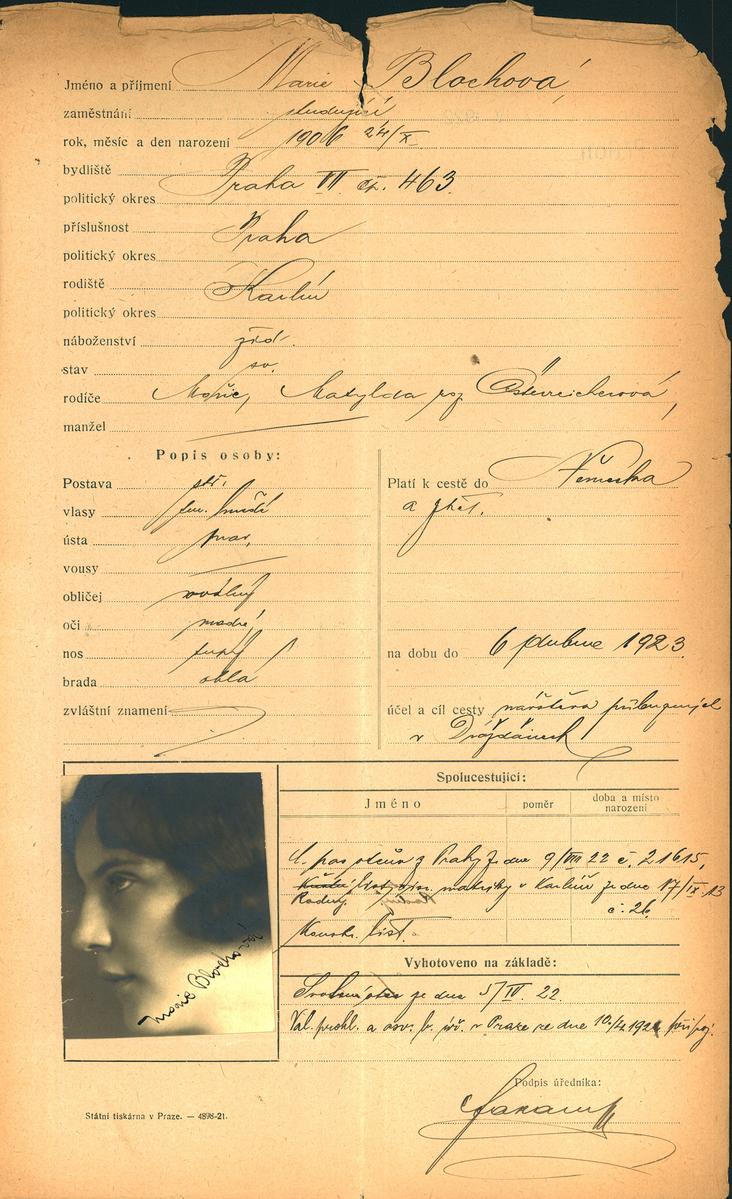 Jméno a příjmení Marie Blochová,
zaměstnání studující
rok, měsíc a den narození 1906 24/X
bydliště
politický okres Praha VII čp. 463.
příslušnost Praha
politický okres
rodiště Karlín
politický okres
náboženství žid.
stav sv.
rodiče Mořic, Matylda roz Österreicherová,
manžel
Popis osoby:
Postava stř.
vlasy tm. hnědé
ústa
vousy
obličej oválný
oči modré
nos tupý
brada oblá
zvláštní znamení
Platí k cestě do Německa
a zpět.
na dobu do 6 dubna 1923.
účel a cíl cesty návštěva příbuzných
v Drážďanech
Spolucestující:
Jméno poměr doba a místo narození
z Prahy ze dne 9/VIII 22 č. 21615,
matriky v Karlíně ze dne 17/IX 13
Rodný
č. 26
list.
Vyhotoveno na základě:
ze dne 5/IV. 22.
a v Praze ze dne
Marie Blochová
Podpis úředníka:
Státní tiskárna v Praze. — 4898-21.